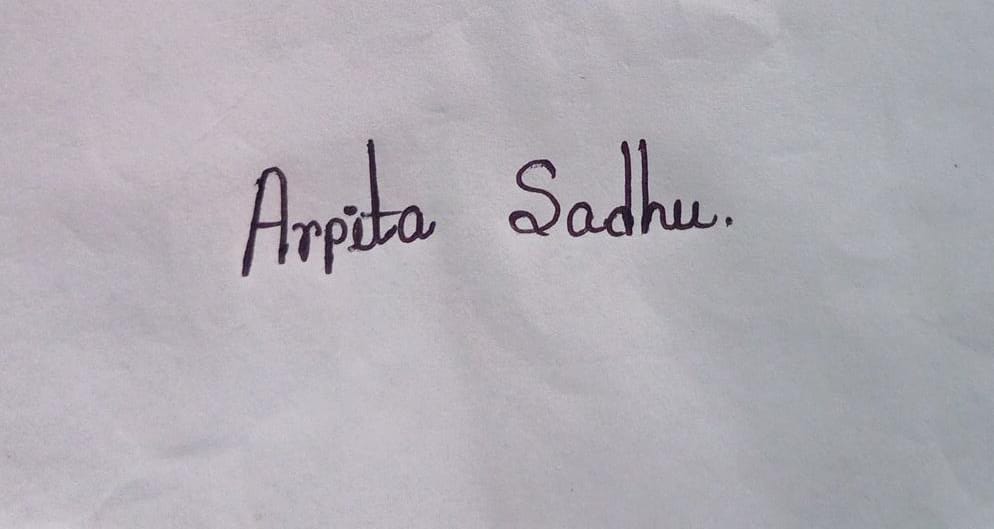 Arpita Sadhu.